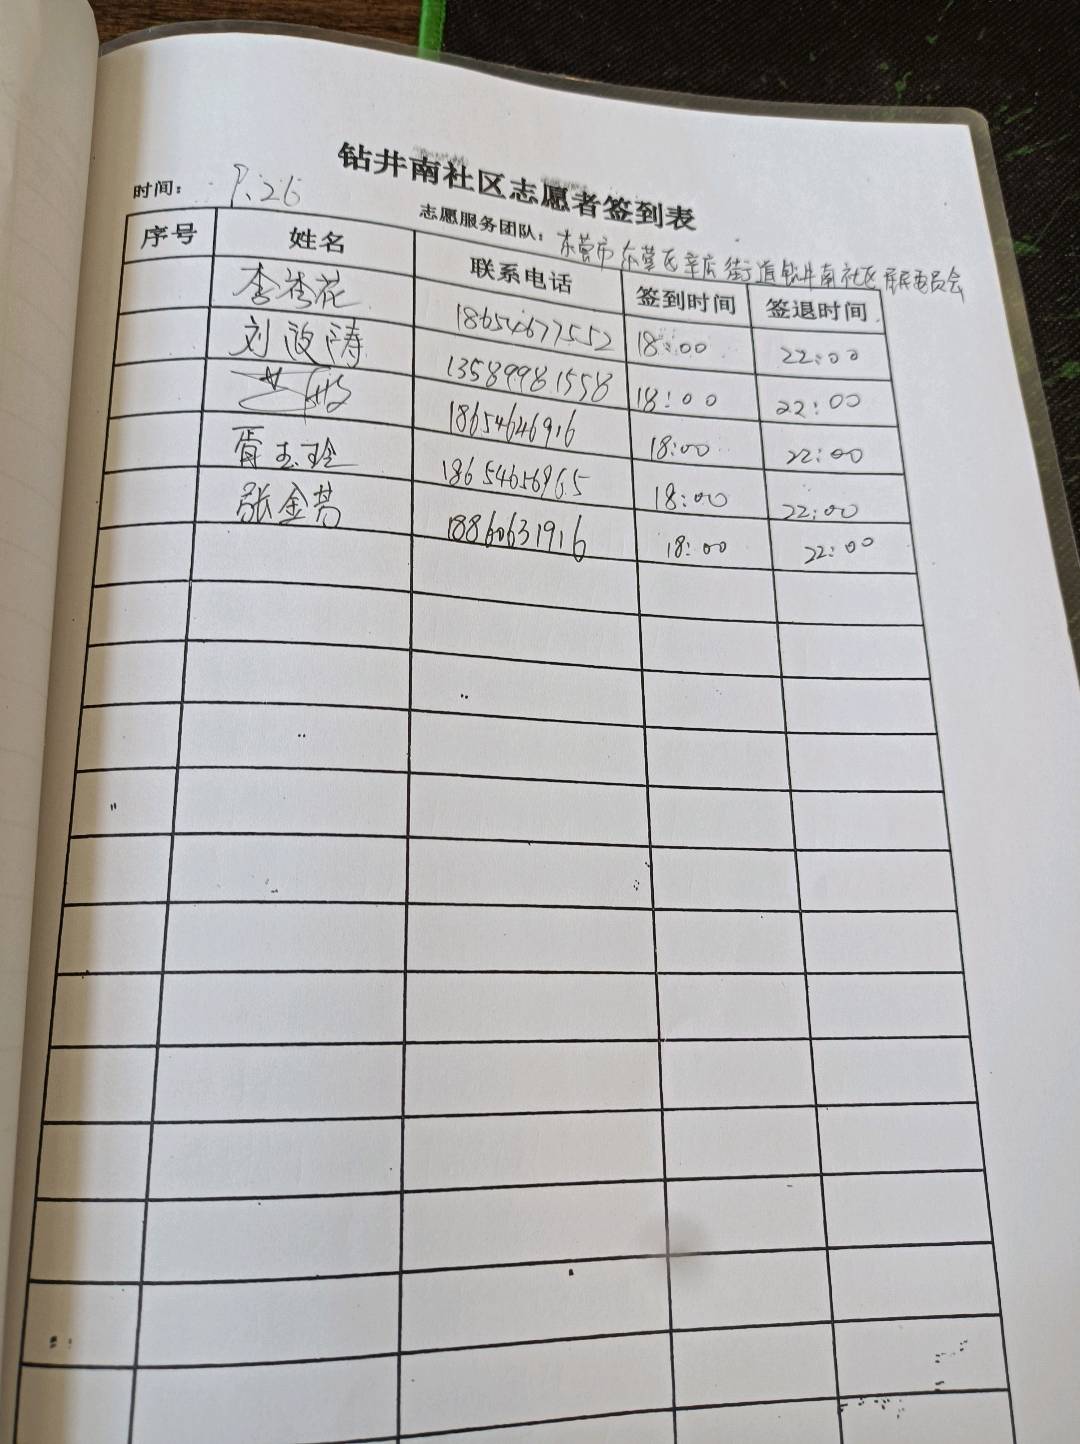 钻井南社区志愿者签到表
时间: 9.26
志愿服务团队: 东营市东营区辛店街道钻井南社区居民委员会
序号 姓名 联系电话 签到时间 签退时间
李杏花 18654677552 18:00 22:00
刘汝涛 13589981558 18:00 22:00
18654646916 18:00 22:00
胥玉玲 18654656965 18:00 22:00
张金 18860631916 18:00 22:00